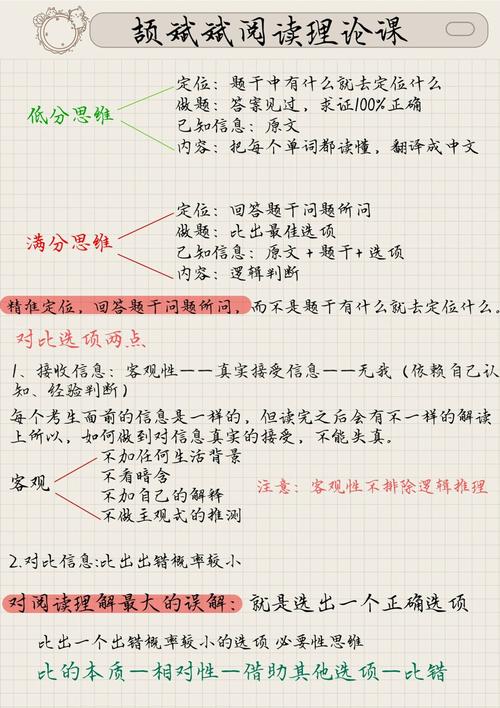 颉斌斌阅读理论课
低分思维
定位：题干中有什么就去定位什么
做题：答案见过，求证100%正确
已知信息：原文
内容：把每个单词都读懂，翻译成中文
满分思维
定位：回答题干问题所问
做题：比出最佳选项
已知信息：原文+题干+选项
内容：逻辑判断
精准定位，回答题干问题所问，而不是题干有什么就去定位什么。
对比选项两点
1、接收信息：客观性——真实接受信息——无我（依赖自己认
知、经验判断）
每个考生面前的信息是一样的，但读完之后会有不一样的解读
上所以，如何做到对信息真实的接受，不能失真。
客观
不加任何生活背景
不看暗含
不加自己的解释
不做主观式的推测
注意：客观性不排除逻辑推理
2.对比信息:比出出错概率较小
对阅读理解最大的误解：就是选出一个正确选项
比出一个出错概率较小的选项 必要性思维
比的本质—相对性—借助其他选项—比错